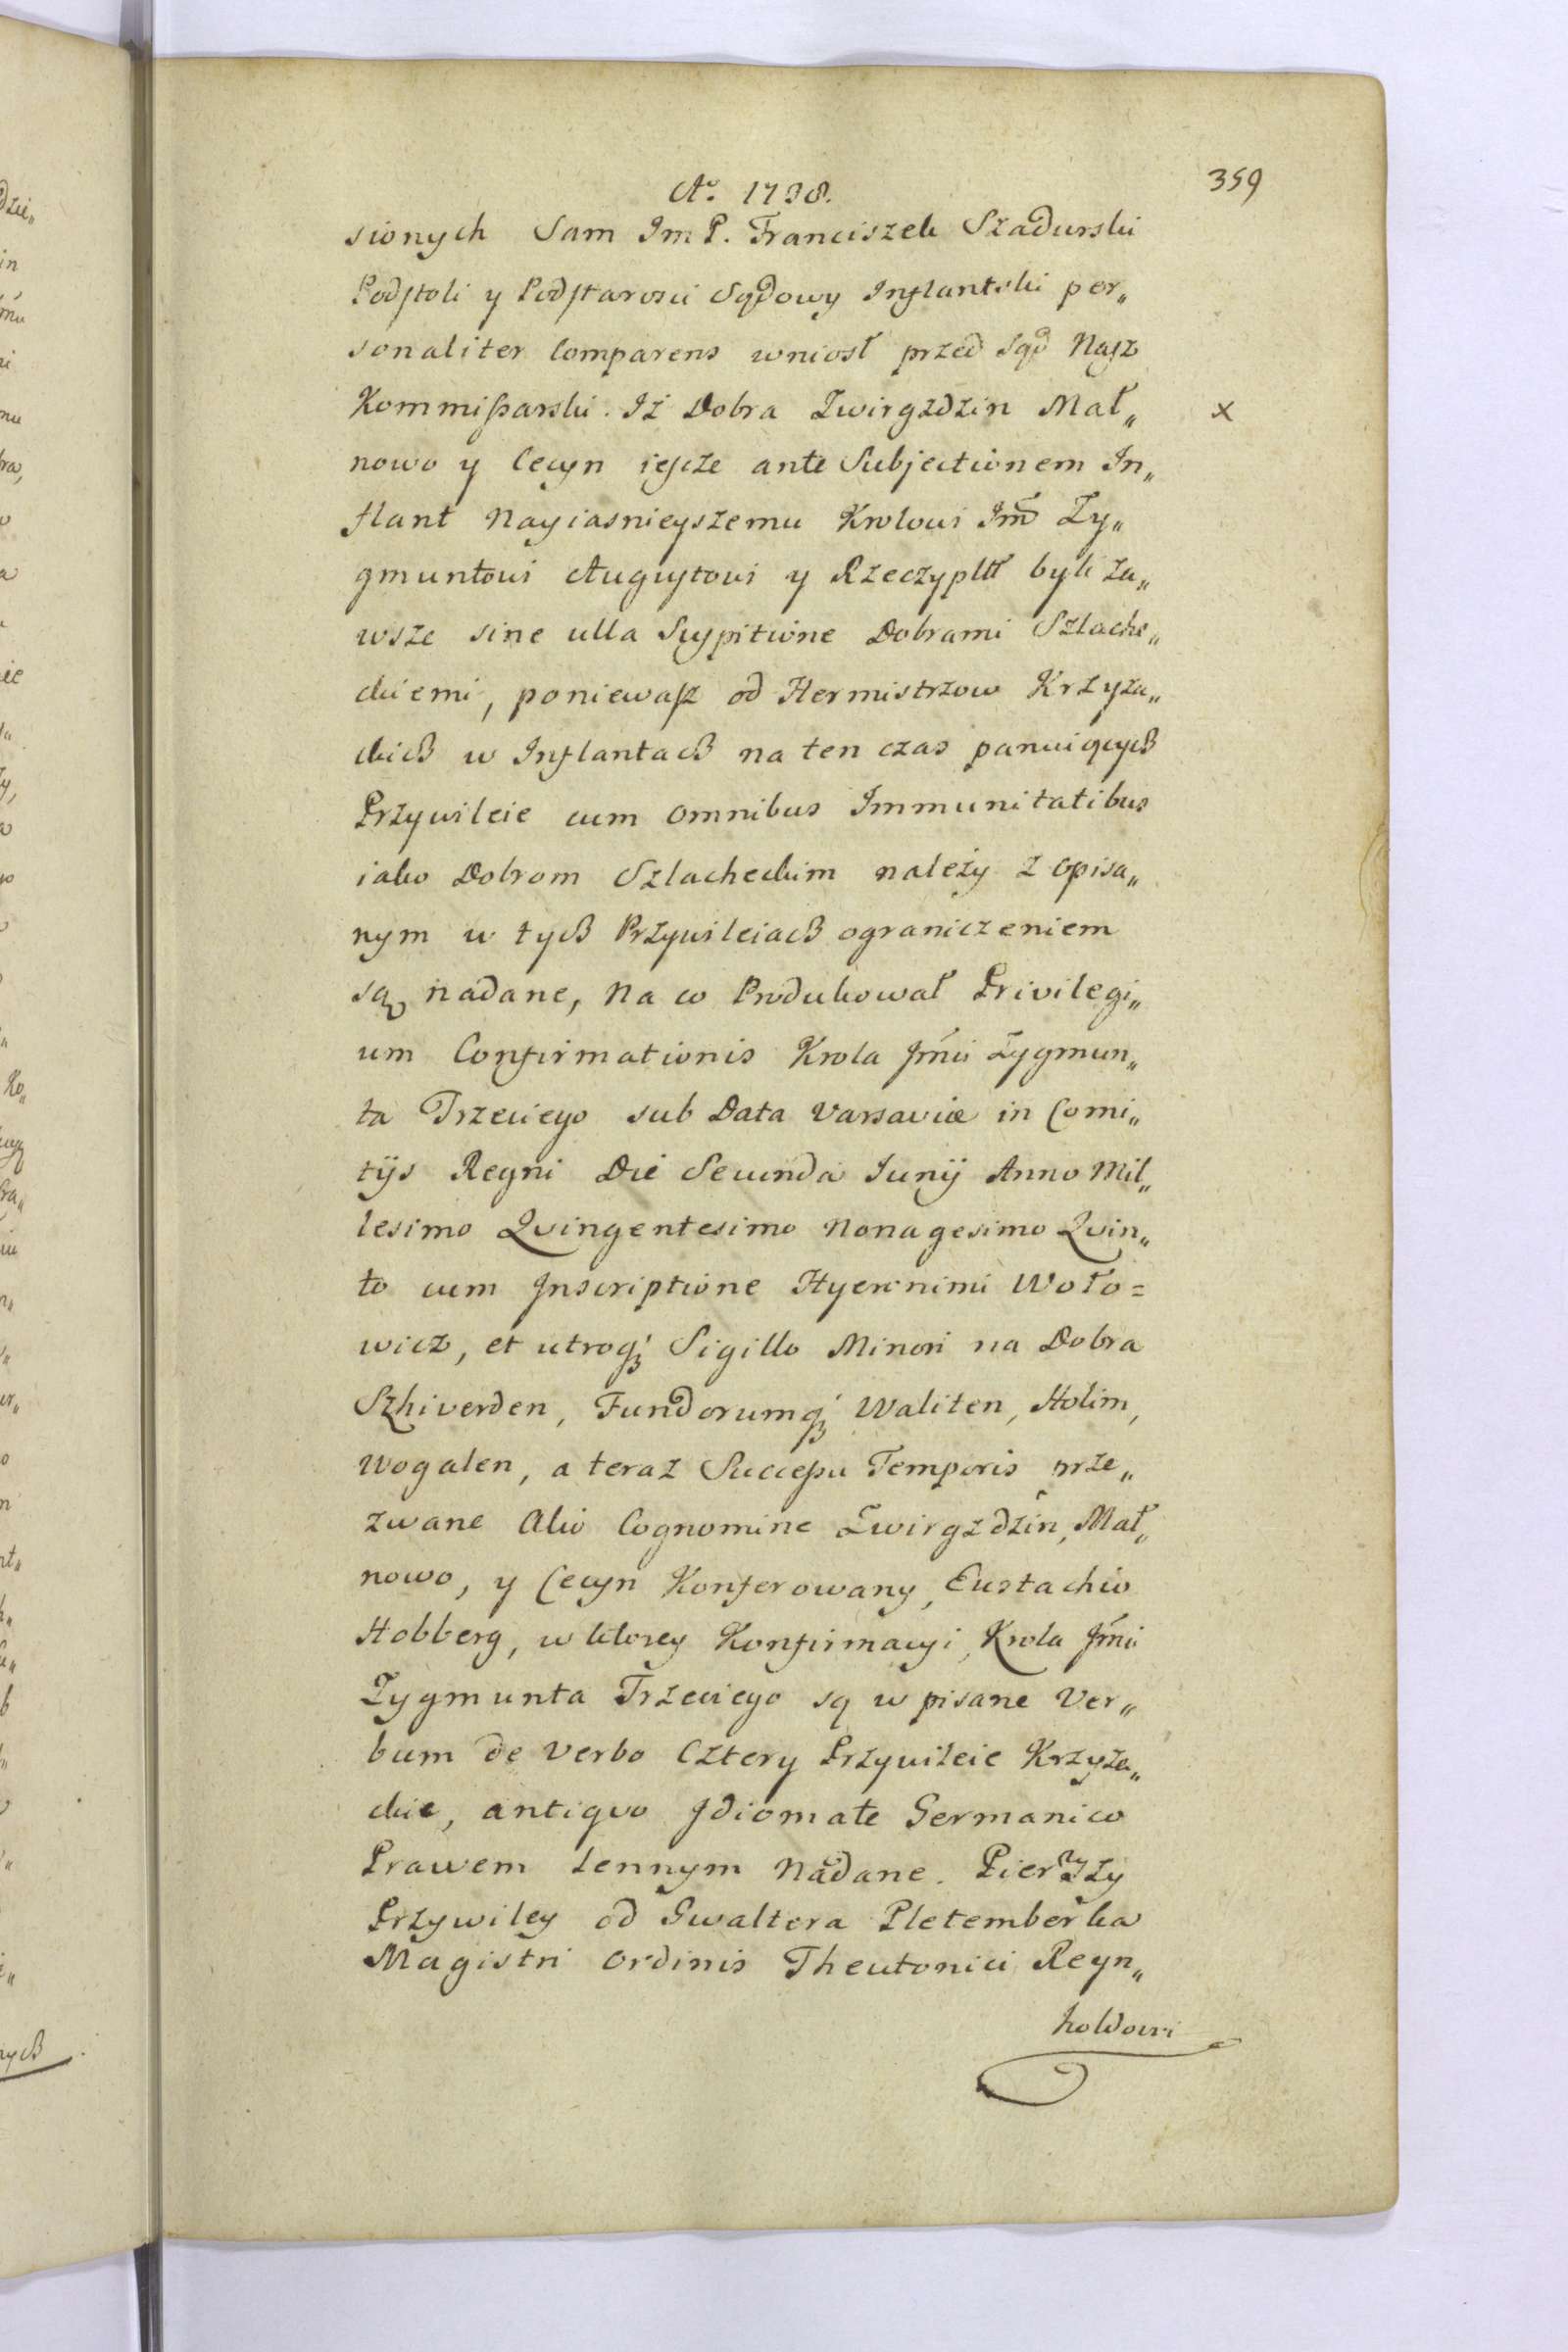 359
Aº. 1738.
sionych Sam Im P. Franciszek Szadurski
Podstoli y Podstarosci Sądowy Inflantski per„
sonaliter Comparens wniosł przed Sąd Nasz
Kommißarski. Iż Dobra Zwirgzdzin Mał„ x
nowo y Cecyn iescze ante Subjectionem In„
flant Nayiasnieyszemu Krolowi Jm̃ Zy„
gmuntowi Augustowi y Rzeczyplłł byli za„
wsze sine ulla Suspitione Dobrami Szlache„
ckiemi, poniewasz od Hermistrzow Krzyża„
ckich w Inflantach na ten czas panuiących
Przywileie cum omnibus Immunitatibus
iako Dobrom Szlacheckim należy z opisa„
nym w tych Przywileiach ograniczeniem
są nadane, Na co Produkował Privilegi„
um Confirmationis Krola Jmći Zygmun„
ta Trzeciego sub Data Varsaviæ in Comi„
tijs Regni Die Secunda Junij Anno Mil„
lesimo Qvingentesimo Nonagesimo Qvin„
to cum Inscriptione Hyeronimi Woło=
wicz, et utroq; Sigillo Minori na Dobra
Szhiverden, Fundorumq; Waliten, Holim,
Wogalen, a teraz Succeßu Temporis prze„
zwane Alio Cognomine Zwirgzdzin, Mał„
nowo, y Cecyn Konferowany, Eustachio
Hobberg, w ktorey Konfirmacyi, Krola Jmći
Zygmunta Trzeciego są w pisane Ver„
bum de Verbo Cztery Przywileie Krzyża„
ckie, antiqvo Idiomate Germanico
Prawem Lennym Nadane. Pierwszy
Przywiley od Gwaltera Pletemberka
Magistri Ordinis Theutonici Reyn„
holdowi